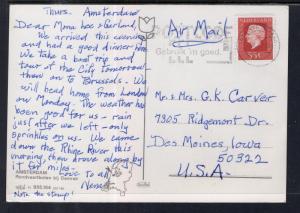 Thurs. Amsterdam
Dear Mona Lee & Garland,
We arrived this evening
and had a good dinner here.
We take a boat trip and
tour of the City tomorrow
then on to Brussels. We
will head home from London
on Monday. The weather has
been good for us - rain
just after we left - only
sprinkles on us. We came
down the Rhine River this
morning, then drove along by
it for miles.
Love to all
Note the stamp!
AMSTERDAM
Rondvaartboten bij Damrak
Air Mail
POSTCODE
Gebruik 'm goed.
NEDERLAND
55c
Mr. & Mrs. G.K. Carver
7305 Ridgemont Dr.
Des Moines, Iowa
50322
U.S.A.